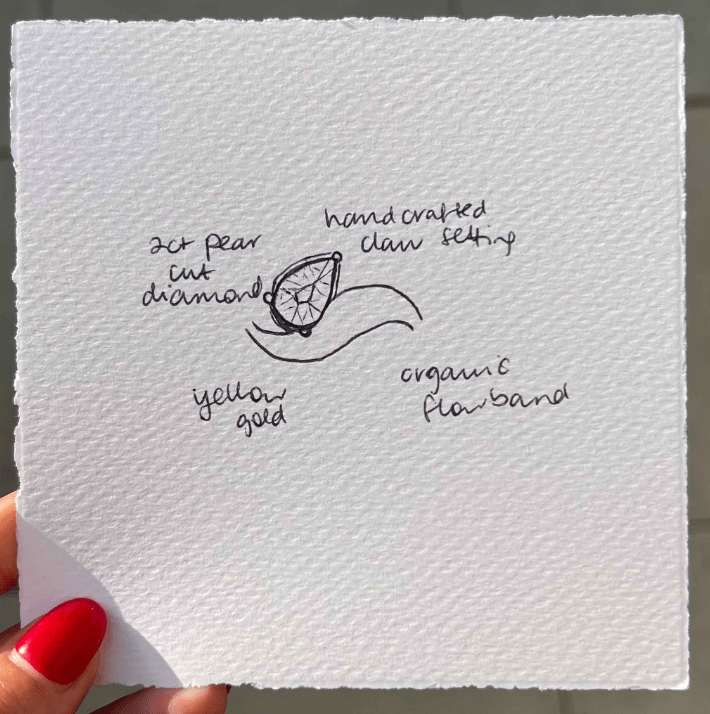 2ct pear
cut
diamond
handcrafted
claw setting
yellow
gold
organic
flow band